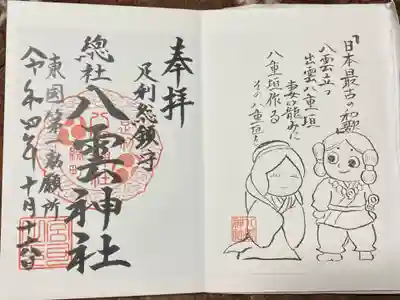 「日本最古の和歌」
八雲立つ
出雲八重垣
妻籠みに
八重垣作る
その八重垣を
奉拝
足利総鎮守
總社
八雲神社
東国第一勅願所
令和四年十月